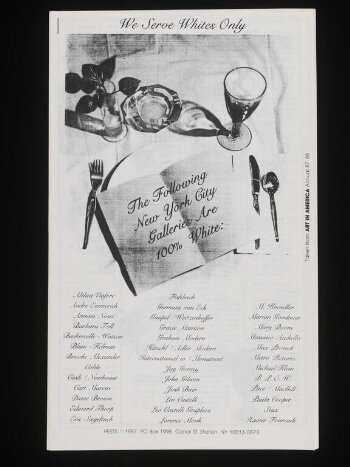 We Serve Whites Only
The Following
New York City
Galleries Are
100% White:
Taken from ART IN AMERICA Annual 87-88
Althea Viafore
Andre Emmerich
Annina Nosei
Barbara Toll
Baskerville + Watson
Blum Helman
Brooke Alexander
Cable
Cash / Newhouse
Curt Marcus
Diane Brown
Edward Thorp
Eric Siegeltuch
Fishbach
Germans van Eck
Gimpel Weitzenhoffer
Gracie Mansion
Graham Modern
Hirschl + Adler Modern
International w/ Monument
Jay Gorney
John Gibson
Josh Baer
Leo Castelli
Leo Castelli Graphics
Lorence Monk
M. Knoedler
Marian Goodman
Mary Boone
Massimo Audiello
Max Protech
Metro Pictures
Michael Klein
P. P. O. W.
Postmasters
Paula Cooper
Stux
Xavier Fourcade
PESTS © 1987 PO Box 1996, Canal St. Station, NY 10013-0873